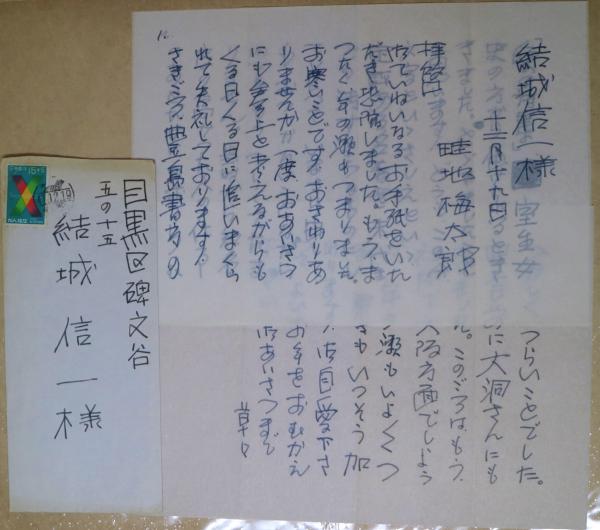 結城信一様
十二月十九日
畦地梅太郎
拝啓
御ていねいなるお手紙をいた
だき恐縮しました。もう、ま
つたく年の瀬もつまりまして
お寒いことです。おさわりあ
りませんか 一度おあいさつ
にも参上と考えるながらも
くる日くる日に追いまくら
れて失礼しております。
さきごろ、豊島書房の
つらいことでした。
に大洞さんにも
このごろは、もう、
大阪方面でしよう
瀬もいよ〱つ
さもいつそう加
御自愛下さ
お年をおむかえ
御あいさつまで
草々
目黒区碑文谷
五の十五
結城信一様